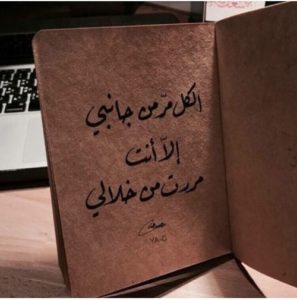 الكل مرّ من جانبي
إلاّ أنت
مررت من خلالي